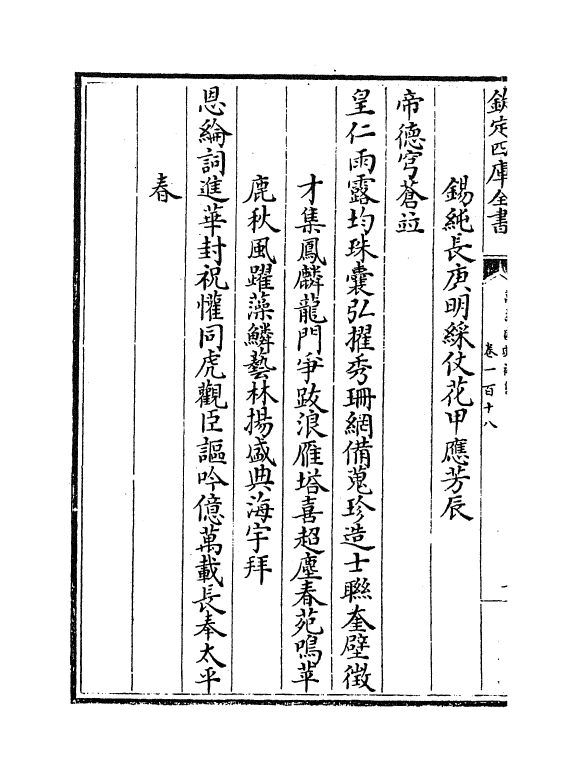 欽定四庫全書
卷一百十八
錫純長庚明綵仗花甲應芳辰
帝德穹蒼竝
皇仁雨露均珠囊弘擢秀珊網備蒐珍造士聯奎壁徵
才集鳳麟龍門爭跋浪雁塔喜超塵春苑鳴苹
鹿秋風躍藻鱗藝林揚盛典海宇拜
恩綸詞進華封祝懽同虎觀臣謳吟億萬載長奉太平
春